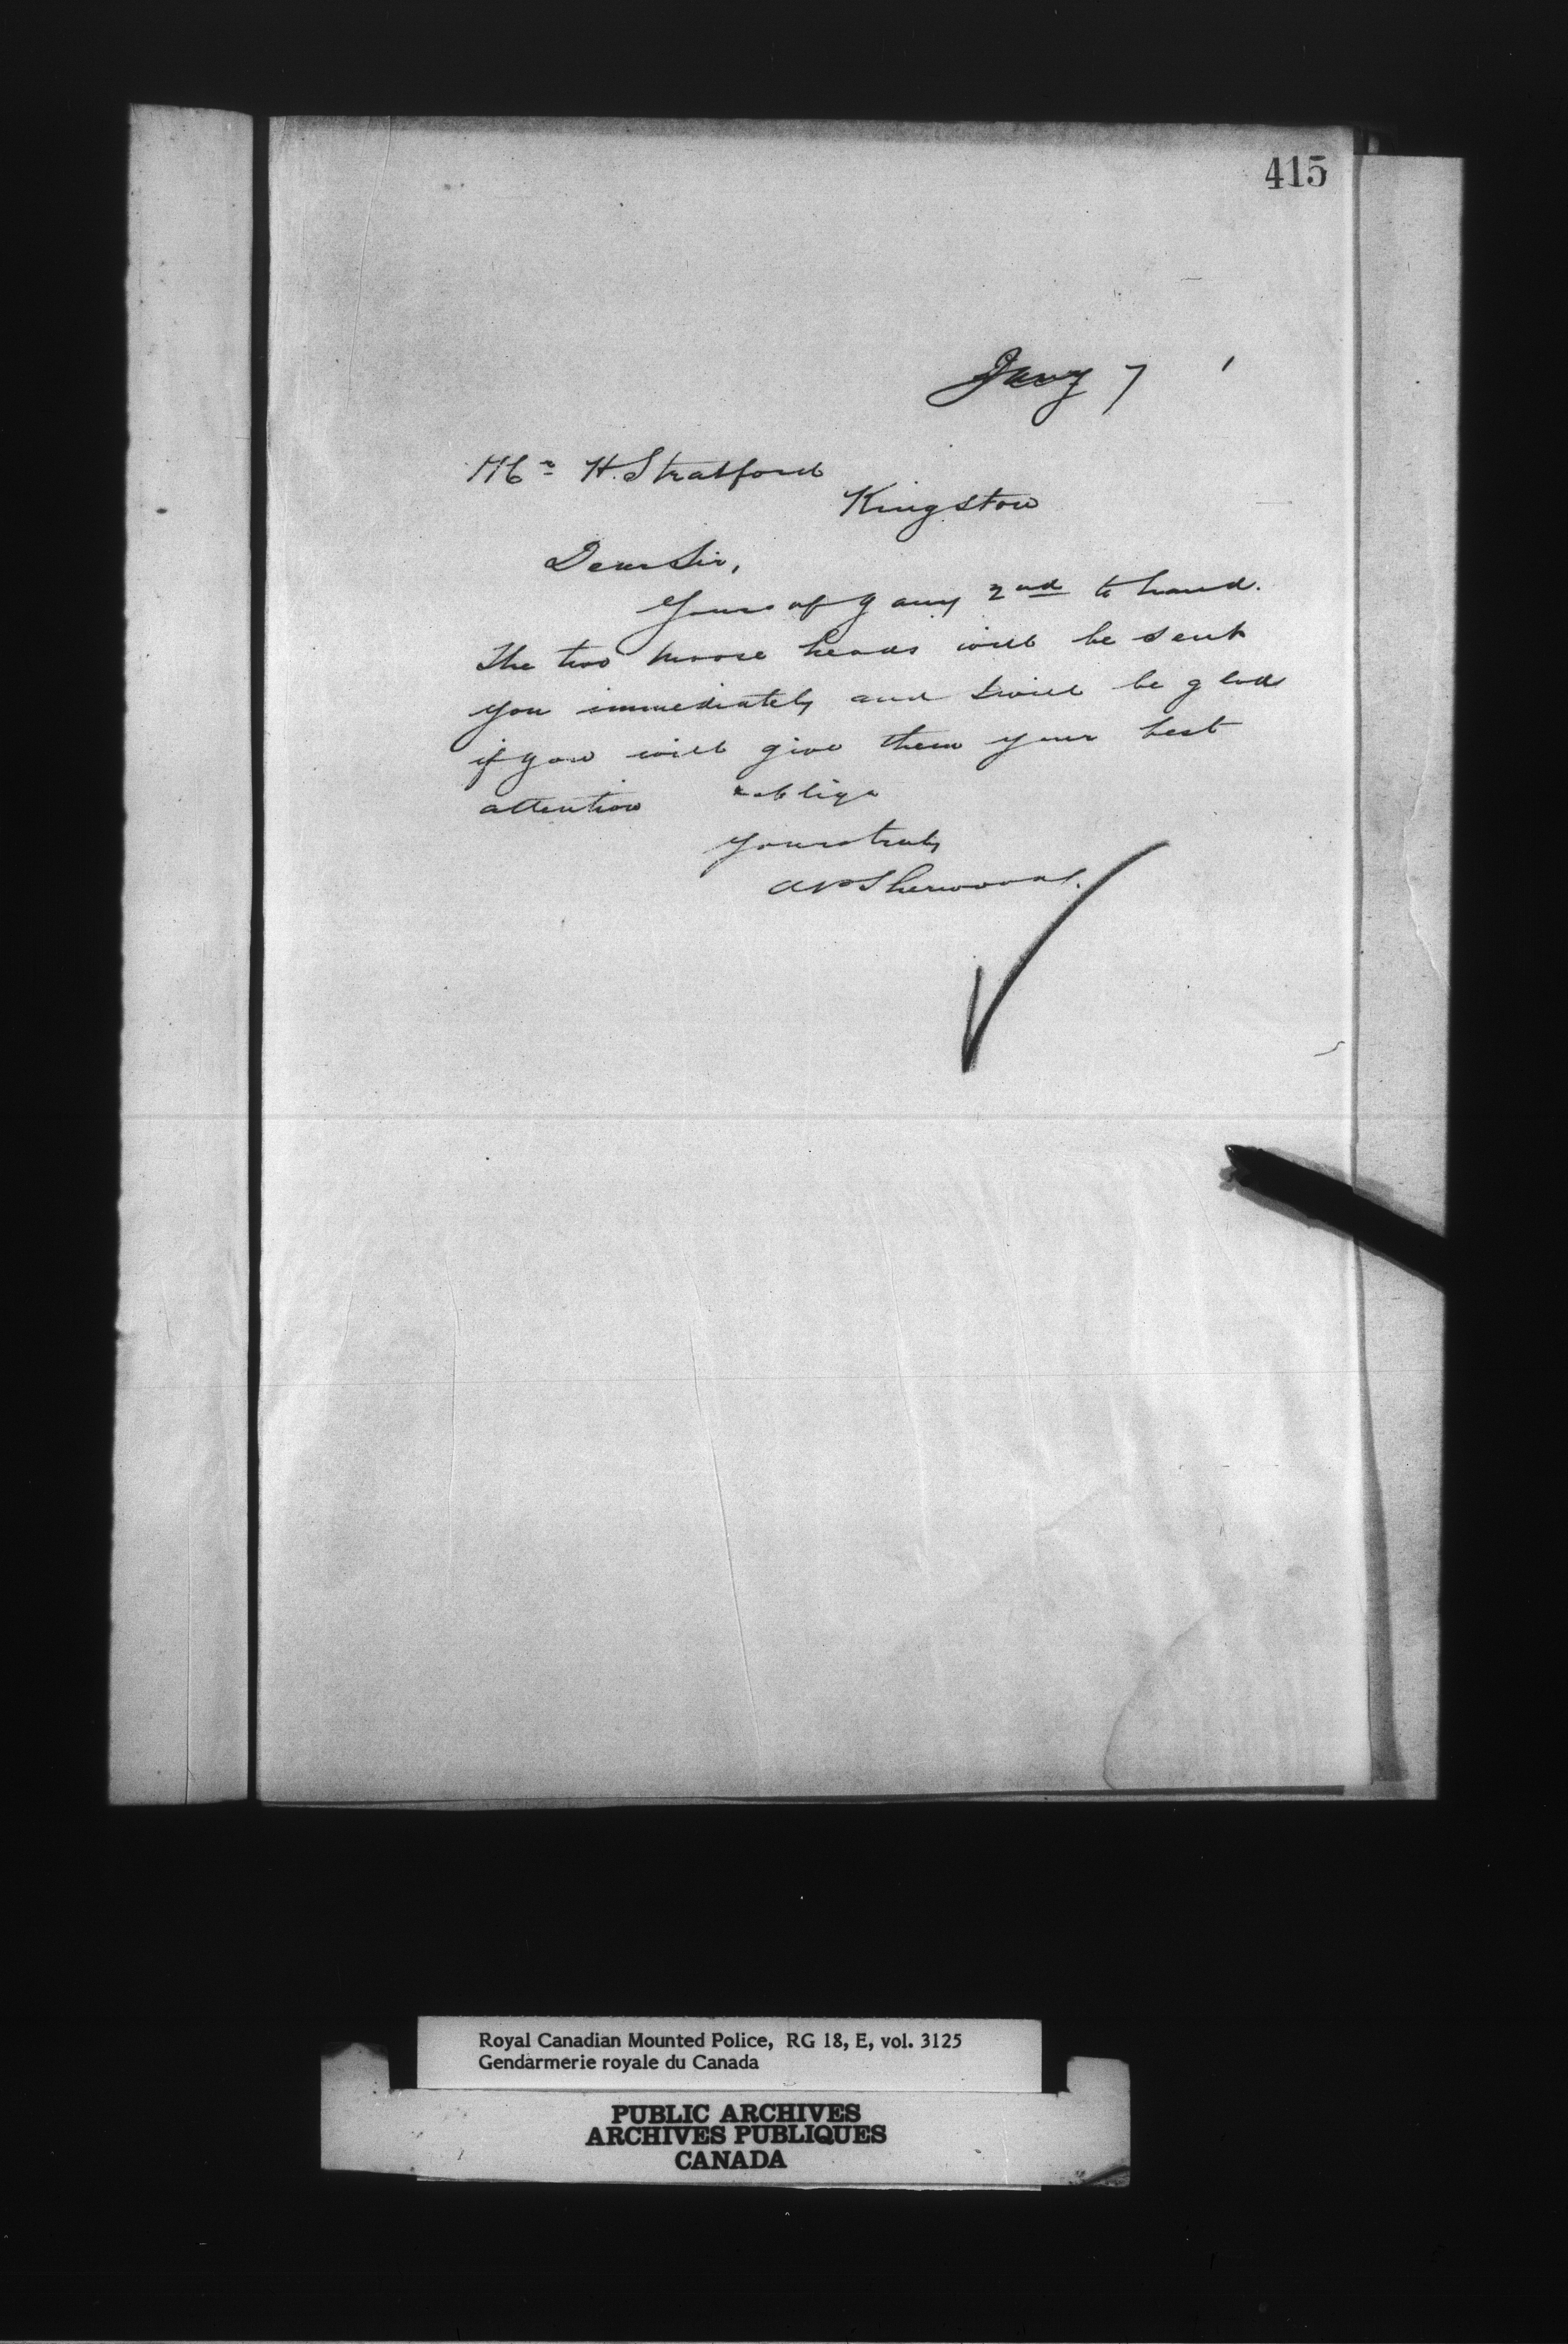 415
Jany 7
Mr H. Stratford
Kingston
Dear Sir,
Yours of Jany 2nd to hand.
The two moose heads will be sent
you immediately and I will be glad
if you will give them your best
attention & oblige
Yours truly
A P Sherwood.
Royal Canadian Mounted Police, RG 18, E, vol. 3125
Gendarmerie royale du Canada
PUBLIC ARCHIVES
ARCHIVES PUBLIQUES
CANADA